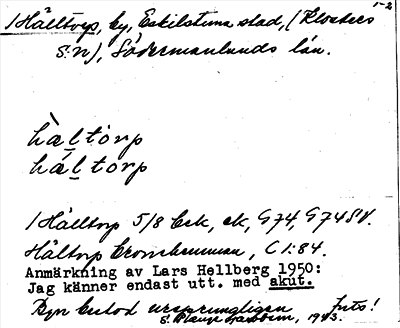 1-2
/Hålltorp, by, Eskilstuna stad, (Klosters
s:n), Södermanlands län.
hàltòrp
háltorp
/Hålltorp 5/8 Eck, ek, G74, G74SV.
Håltorp Cronobrunnan, C1:84.
Anmärkning av Lars Hellberg 1950:
Jag känner endast utt. med akut.
Byn bestod ursprungligen Forts!
S. 1943.